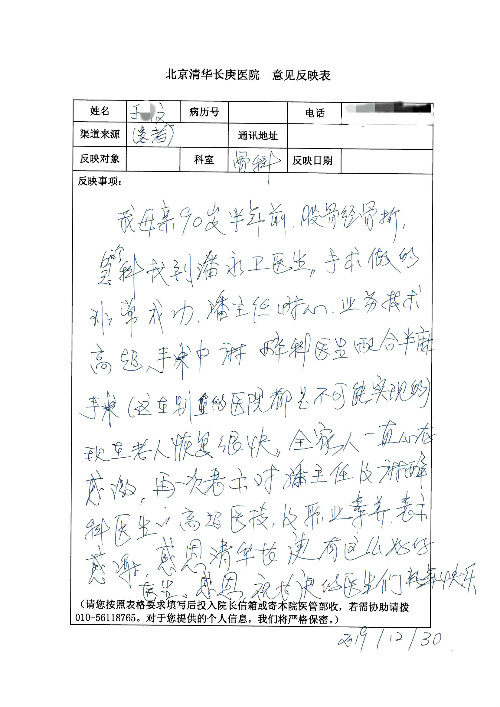 北京清华长庚医院 意见反映表
姓名 于 文 病历号 电话
渠道来源 (患者) 通讯地址
反映对象 科室 骨科 反映日期
反映事项：
我母亲90岁半年前，股骨经骨折，
骨科找到潘永卫医生，手术做的
非常成功，潘主任 业务技术
高超，手术中麻醉科医生配合半麻
手术（这在别的医院都是不可能实现的）
现在老人恢复很快，全家人一直心存
感激，再一次表示对潘主任及麻醉
科医生 高超医技，及职业素养，表示
感谢，感恩清华长庚有这么好的
医生。感恩 医生们 快乐
（请您按照表格要求填写后投入院长信箱或寄本院医管部收，若需协助请拨
010-56118765。对于您提供的个人信息，我们将严格保密。）
2019/12/30